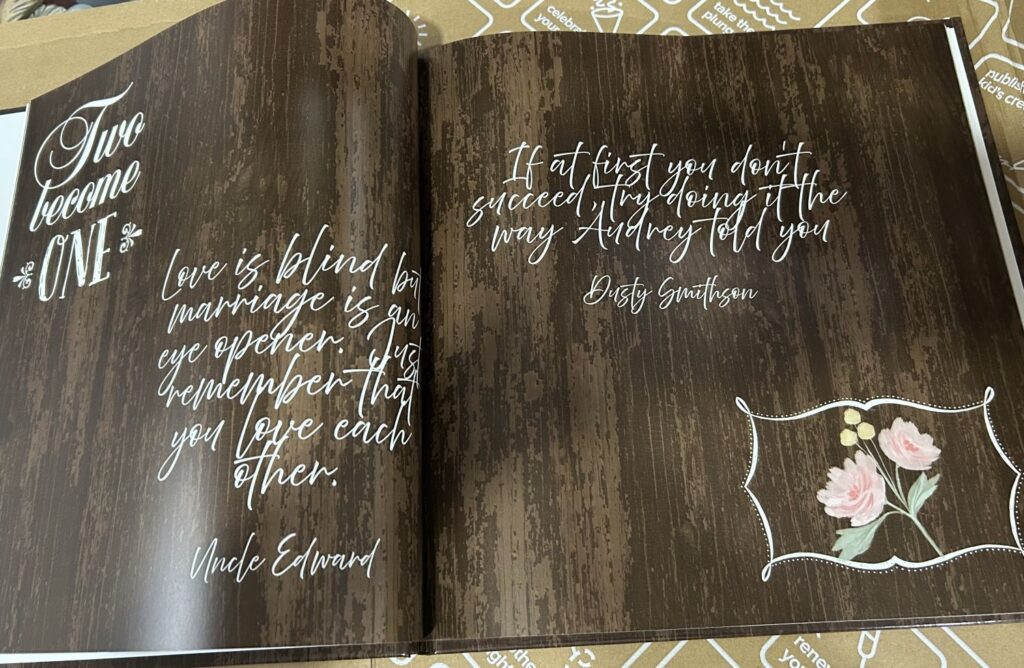 Two
become
ONE
Love is blind bu
marriage is an
eye opener. Just
remember that
you love each
other.
Uncle Edward
If at first you don't
succeed, try doing it the
way Audrey told you
Dusty Smithson
celebra
your
take the
plung
publis
kid's cre
the
rene
yo